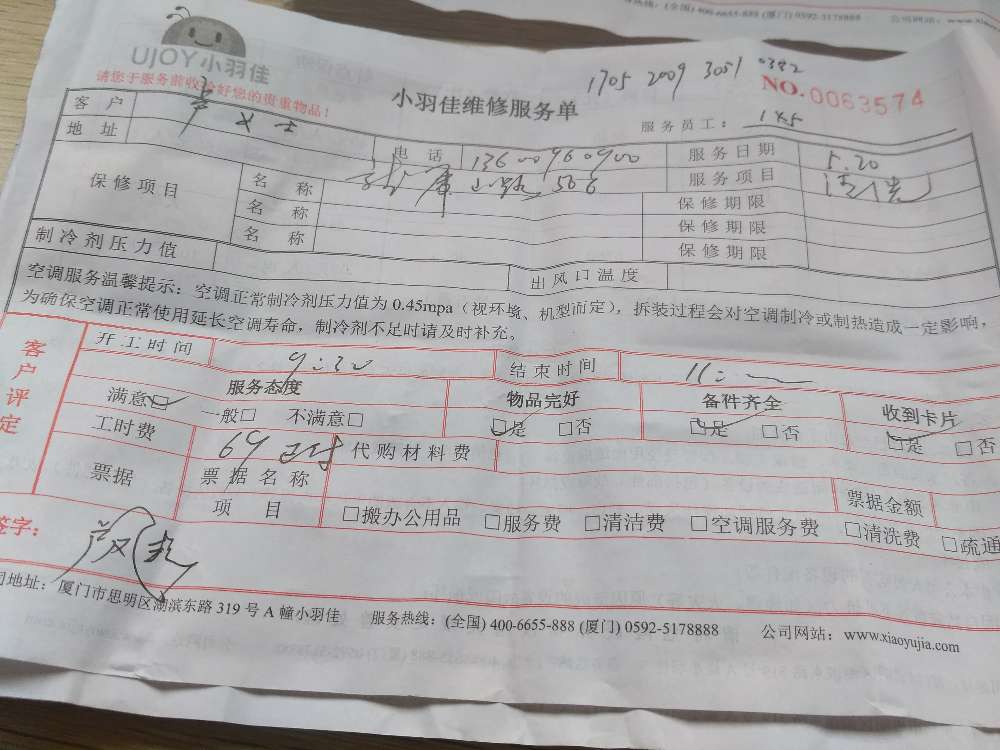 热线：(全国) 400-6655-888 (厦门) 0592-5178888 公司网站：www.xiao
UJOY小羽佳
请您于服务前收拾好您的贵重物品！
小羽佳维修服务单
1705 2009 3051 0382
NO.0063574
服务员工：145
客户 女士
地址 电话 13600960900 服务日期 5.20
保修项目 名称 506 服务项目 清洗
名称 保修期限
名称 保修期限
保修期限
制冷剂压力值 出风口温度
空调服务温馨提示：空调正常制冷剂压力值为 0.45mpa（视环境、机型而定），拆装过程会对空调制冷或制热造成一定影响，
为确保空调正常使用延长空调寿命，制冷剂不足时请及时补充。
客户评定
开工时间 9:30 结束时间 11:
服务态度 物品完好 备件齐全 收到卡片
满意☑ 一般□ 不满意□ ☑是 □否 ☑是 □否 ☑是 □否
工时费 69 代购材料费
票据 票据名称 票据金额
项目 □搬办公用品 □服务费 □清洁费 □空调服务费 □清洗费 □疏通
签字：
司地址：厦门市思明区湖滨东路 319 号 A 幢小羽佳 服务热线：(全国) 400-6655-888 (厦门) 0592-5178888 公司网站：www.xiaoyujia.com